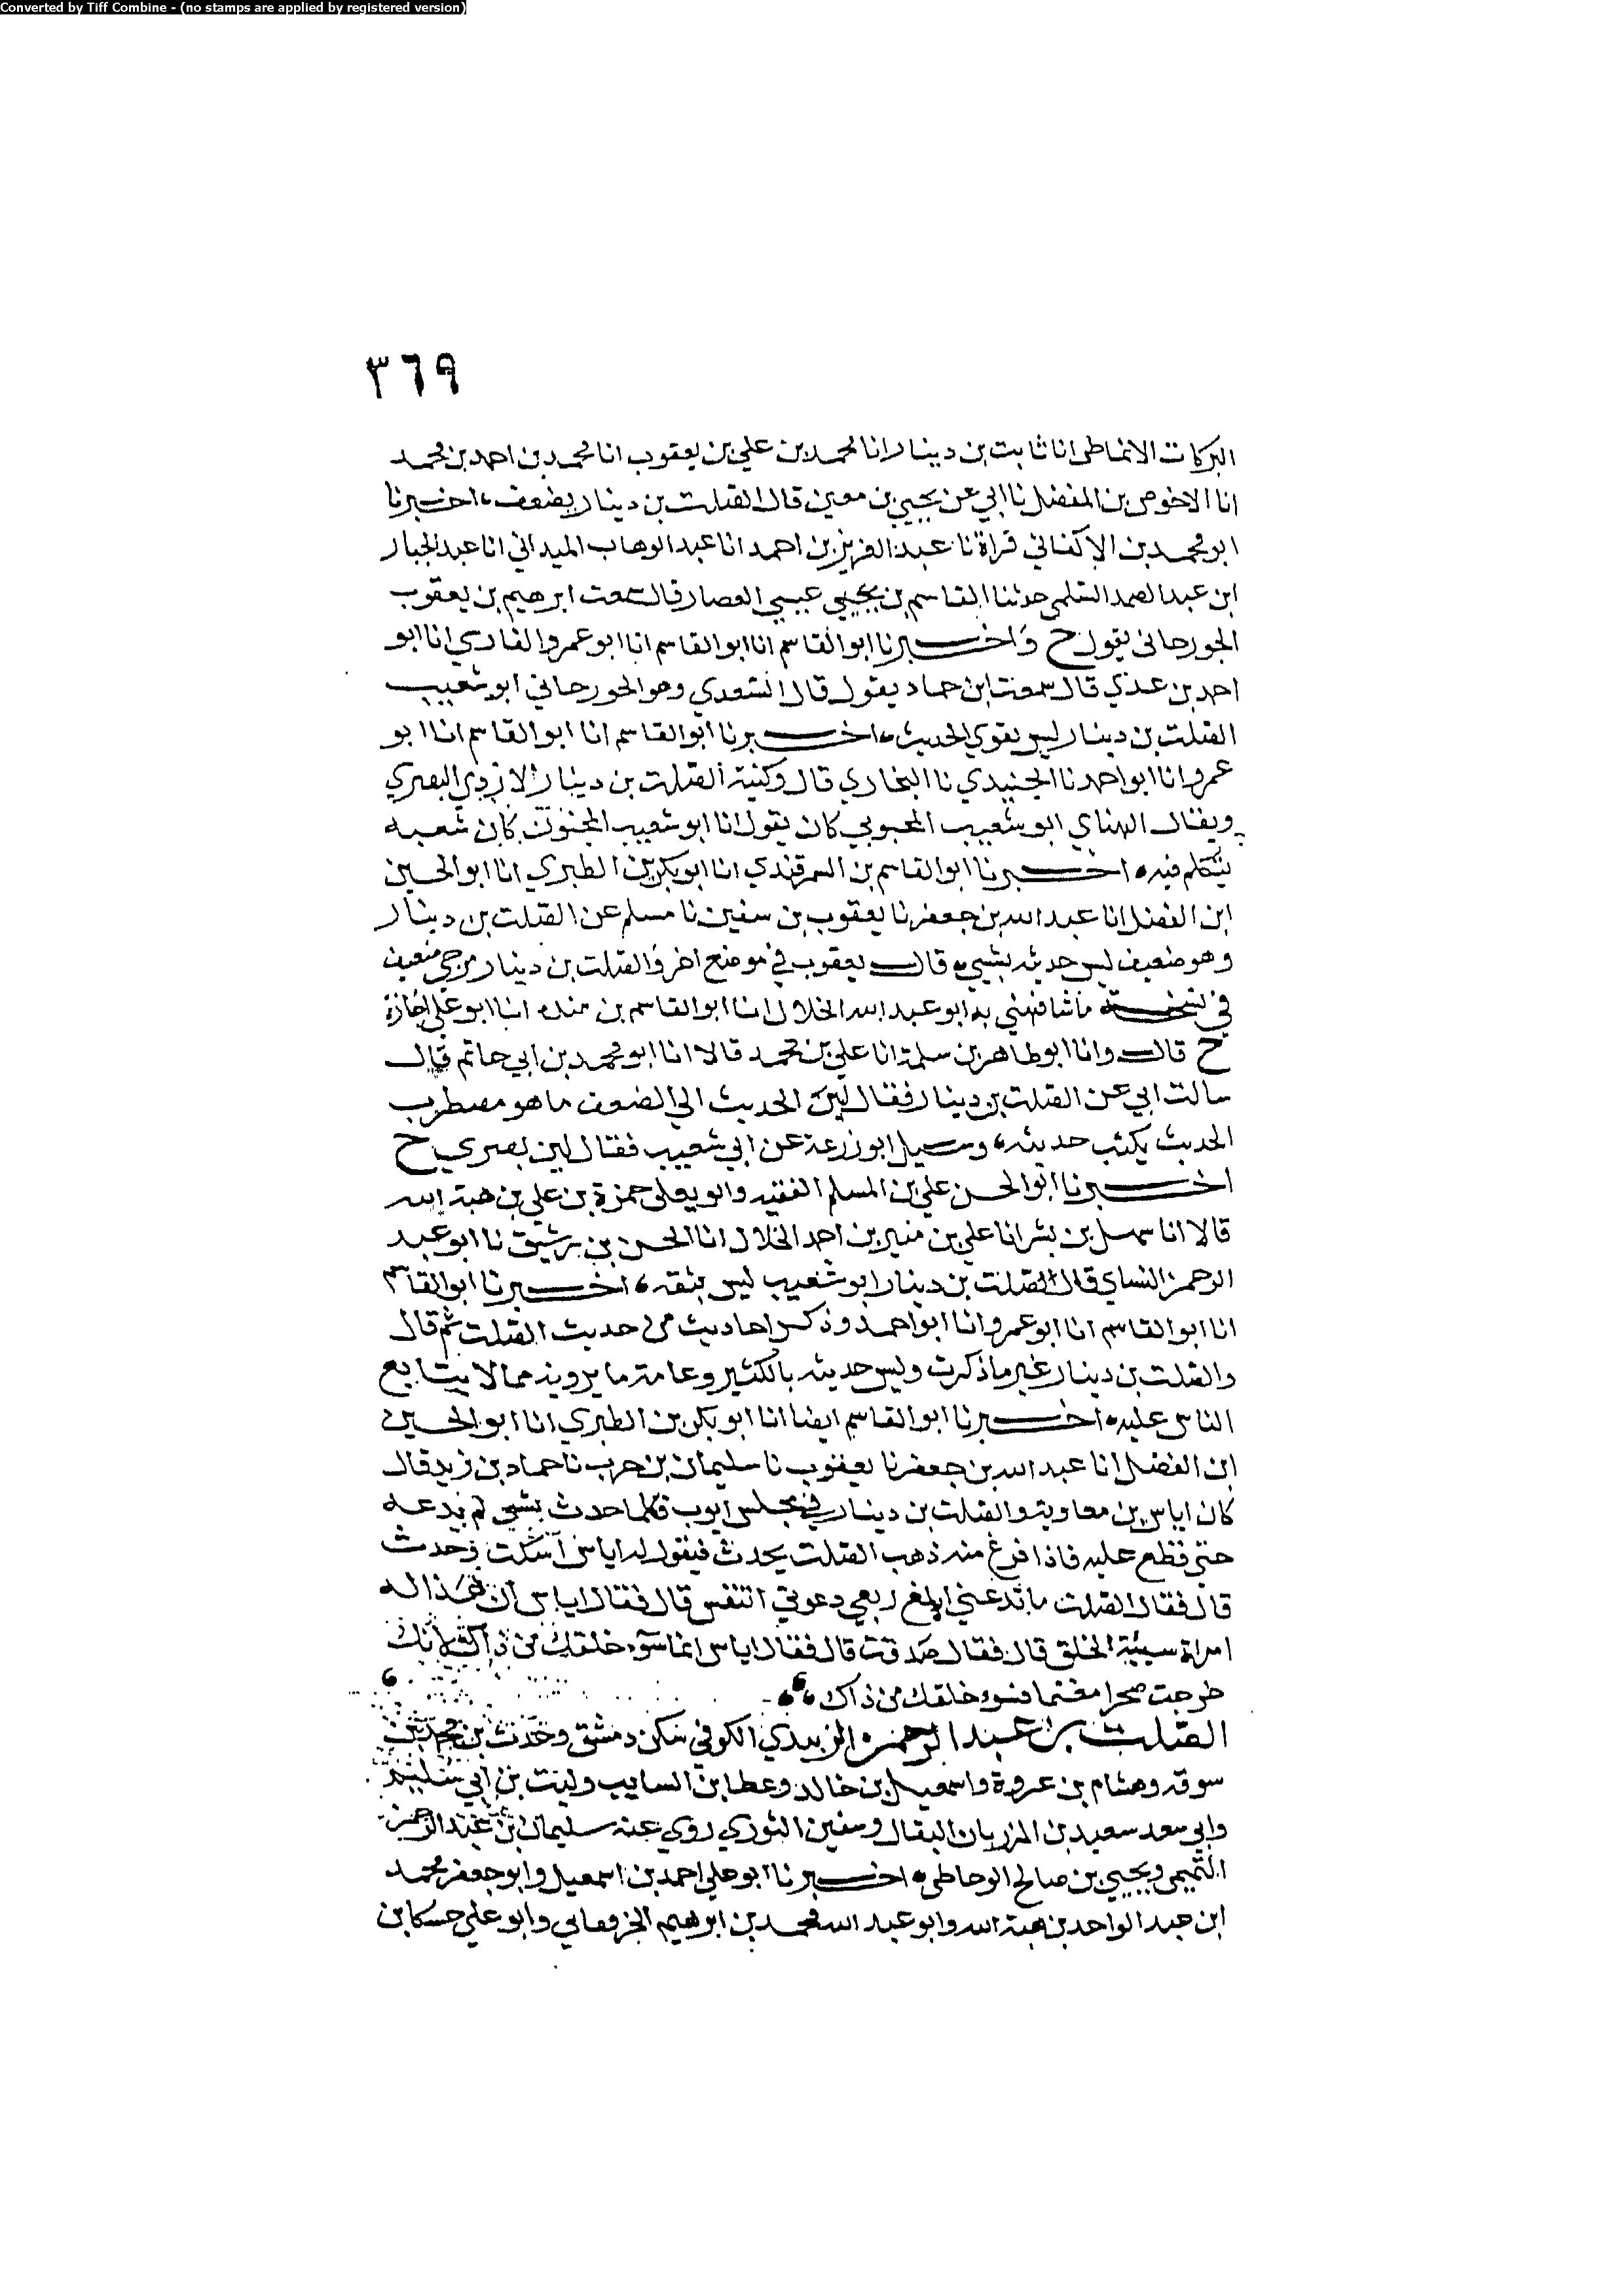 Converted by Tiff Combine - (no stamps are applied by registered version)
٣٦٩
البركات الانماطي انا ثابت بن دينار انا محمد بن علي بن يعقوب انا محمد بن احمد بن محمد
انا الاخوص بن المفضل نا ابي عن يحيي بن معين قال الصلت بن دينار يضعف، اخبرنا
ابو محمد بن الاكفاني قراة نا عبد العزيز بن احمد انا عبد الوهاب الميداني انا عبد الجبار
ابن عبد الصمد السلمي حدثنا القاسم بن يحيي عيسي العصار قال سمعت ابرهيم بن يعقوب
الجورجاني يقول ح واخبرنا ابو القاسم انا ابو القاسم انا ابو عمرو الفارسي انا ابو
احمد بن عدي قال سمعت ابن حماد يقول قال السعدي وهو الجورجاني ابو شعيب
الصلت بن دينار ليس بقوي الحديث، اخبرنا ابو القاسم انا ابو القاسم انا ابو
عمرو انا ابو احمد نا الجنيدي نا البخاري قال وكنية الصلت بن دينار الازدي البصري
ويقال الهناي ابو شعيب كان يقول انا ابو شعيب المجنون كان شعبه
يتكلم فيه، اخبرنا ابو القاسم بن السمرقندي انا ابو بكر بن الطبري انا ابو الحسين
ابن الفضل انا عبد الله بن جعفر نا يعقوب بن سفين نا مسلم عن الصلت بن دينار
وهو ضعيف ليس حديثه بشي، قال يعقوب في موضع اخر والصلت بن دينار مرجي ضعيف
في نسخة ما شافهني به ابو عبد الله الخلال انا ابو القاسم بن منده انا ابو علي اجازة
ح قال وانا ابو طاهر بن سلمة انا علي بن محمد قالا انا ابو محمد بن ابي حاتم قال
سالت ابي عن الصلت بن دينار فقال لين الحديث الي الضعف ما هو مضطرب
الحديث يكتب حديثه، وسيل ابو زرعة عن ابي شعيب فقال لين بصري ح
اخبرنا ابو الحسن علي بن المسلم الفقيه وابو يعلي حمزة بن علي بن هبة الله
قالا انا سهل بن بشر انا علي بن منير بن احمد الخلال انا الحسن بن رشيق نا ابو عبد
الرحمن النساي قال الصلت بن دينار ابو شعيب ليس بثقه، اخبرنا ابو القاسم
انا ابو القاسم انا ابو عمرو انا ابو احمد وذكر احاديث من حديث الصلت ثم قال
والصلت بن دينار غير ما ذكرت وليس حديثه بالكثير وعامة ما يرويه مما لا يتابع
الناس عليه، اخبرنا ابو القاسم ايضا انا ابو بكر بن الطبري انا ابو الحسين
ابن الفضل انا عبد الله بن جعفر نا يعقوب نا سليمان بن حرب نا حماد بن زيد قال
كان اياس بن معاوية والصلت بن دينار في مجلس ايوب فكلما احدث بشي لم يدعه
حتي قطع عليه فاذا فرغ منه ذهب الصلت يحدث فيقول له اياس اسكت وحدث
قال فقال الصلت ما تدعني ابلغ ريقي دعوني اتنفس قال فقال اياس ان هذا له
امراة سيئة الخلق قال فقال صدقت قال فقال اياس انما سوء خلقك من ذاك لانك
خرجت ضجرا مغتما فسوء خلقك من ذاك،
الصلت بن عبد الرحمن الزبيدي الكوفي سكن دمشق وحدث بن محمد بن
سوقه وهشام بن عروة واسمعيل بن خالد وعطا بن السايب وليث بن ابي سليم
وابي سعد سعيد بن المرزبان البقال وسفين الثوري روي عنه سليمان بن عبد الرحمن
التميمي ويحيي بن صالح الوحاطي، اخبرنا ابو علي احمد بن اسمعيل وابو جعفر محمد
ابن عبد الواحد بن هبة الله وابو عبد الله محمد بن ابرهيم وابو علي حسكا بن